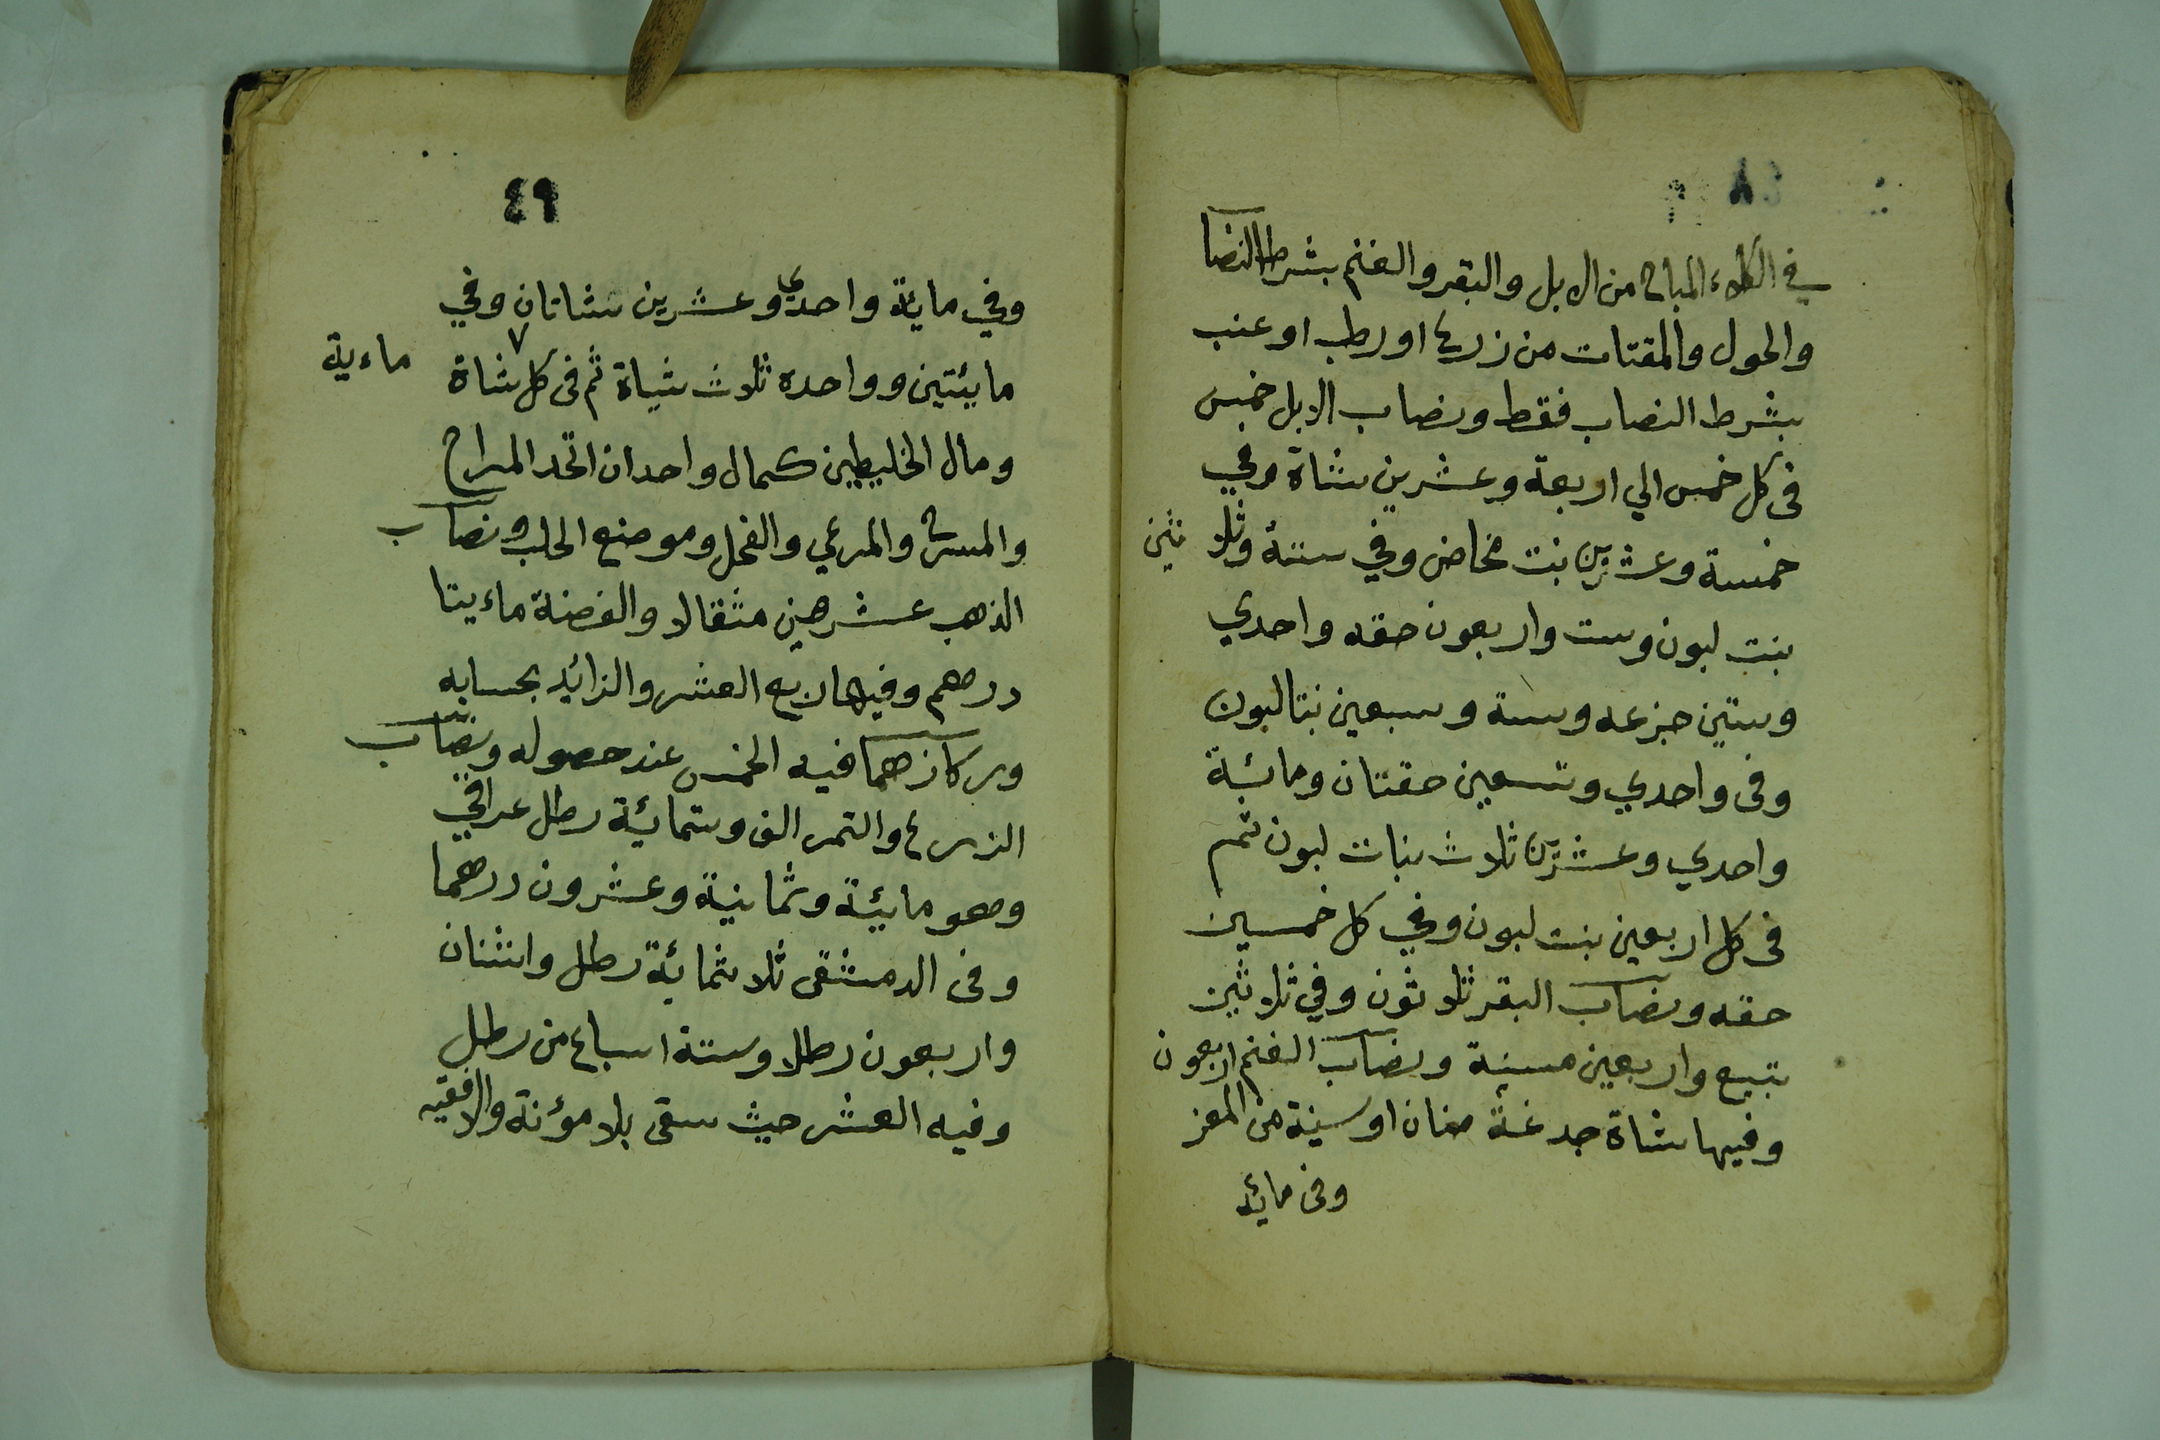 ٤٨
في الكلاء المباح من الابل والبقر والغنم بشرط النصا
والحول والمقتات من زرع او رطب او عنب
بشرط النصاب فقط ونصاب الابل خمس
فى كل خمس الي اربعة وعشرين شاة وفي
خمسة وعشرين بنت مخاض وفي ستة وثلا ثين
بنت لبون وست واربعون حقه واحدي
وستين جزعه وستة وسبعين بنتا لبون
وفى واحدي وتسعين حقتان ومائة
واحدي وعشرين ثلاث بنات لبون ثم
فى كل اربعين بنت لبون وفي كل خمسين
حقه ونصاب البقر ثلاثون وفي ثلاثين
تبيع واربعين مسنة ونصاب الغنم اربعون
وفيها شاة جدعة ضان او سنية من المعز
وفى مائة
٤٩
وفي ماية واحدي وعشرين شاتان وفي
مايئتين وواحده ثلاث شياة ثم فى كل شاة
ماءية
ومال الخليطين كمال واحد ان اتحد المراح
والمسرح والمرعي والفحل وموضع الحلب ونصاب
الذهب عشرهين مثقالا والفضة ماءيتا
درهم وفيها ربع العشر والزائد بحسابه
وركازهما فيه الخمس عند حصوله ونصاب
الزرع والتمر الف وستمائة رطل عراقي
وهو مايئة وثمانية وعشرون درهما
وفى الدمشقى ثلاثمائة رطل واثنان
واربعون رطلا وستة اسباع من رطل
وفيه العشر حيث سقى بلا مؤنة والا ففيه